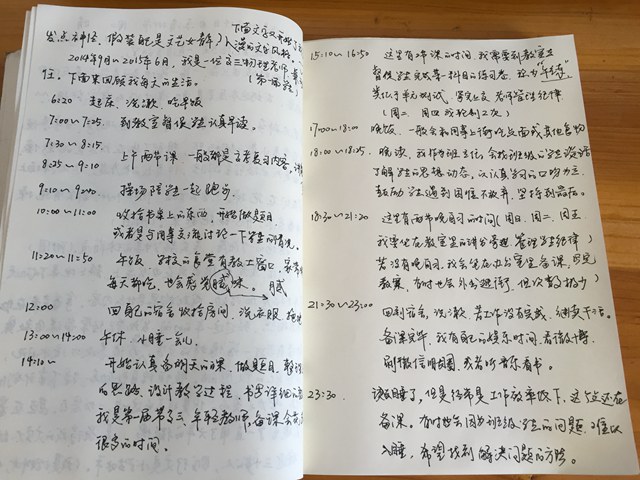 发点神经，假装自己是文艺女青年，下面文字又开始了
浪漫的文字风格。
2014年9月～2015年6月，我是一位高三物理老师兼
任。下面来回顾我每天的生活。
6:20 起床、洗漱、吃早饭
7:00～7:25 到教室督促学生认真早读。
7:30～8:15
8:25～9:10 上午两节课 一般都是高考复习内容，讲
9:10～9:40 操场陪学生一起跑步
10:00～11:00 收拾书桌上的东西，开始做题目
或者是与同事交流讨论一下学生的情况。
11:20～11:50 午饭，学校的食堂有教工窗口，
每天都吃，也会感觉腻味。腻
12:00 回自己的宿舍收拾房间、洗衣服
13:00～14:00 午休，小睡一会儿
14:10～ 开始认真备明天的课，做题目，整理
的思路，设计教学过程，书写详细
我是第一届带高三，年轻教师，备课会花
很多的时间。
15:10～16:50 这里有2节课的时间，我需要到教室里
督促学生完成某一科目的练习卷，称为"午练"
类似于单元测试，写完上交，老师管理纪律
（周二、周四我轮到2次）
17:00～18:00 晚饭，一般会和同事上街吃点面或其他食物
18:00～18:25 晚读，我作为班主任，会找班级的学生谈话
了解学生的思想动态，以认真学习的口吻为主
鼓励学生遇到困惑不放弃，坚持到最后。
18:30～21:20 这里有两节晚自习的时间（周日、周二、周五
我要坐在教室里面讲台旁边，管理学生纪律）
若没有晚自习，我会坐在办公室里备课，
教案，有时也会外出逛街，但次数极少
21:30～23:00 回到宿舍，洗漱，若工作没有完成，继续干活。
备课完毕，我有自己的娱乐时间，看微博，
刷微信朋友圈，或者听音乐看书。
23:30 该睡了，但是经常是工作效率低下，这个点还在
备课。有时也会因为班级、学生的问题，难以
入睡，希望找到解决问题的方法。